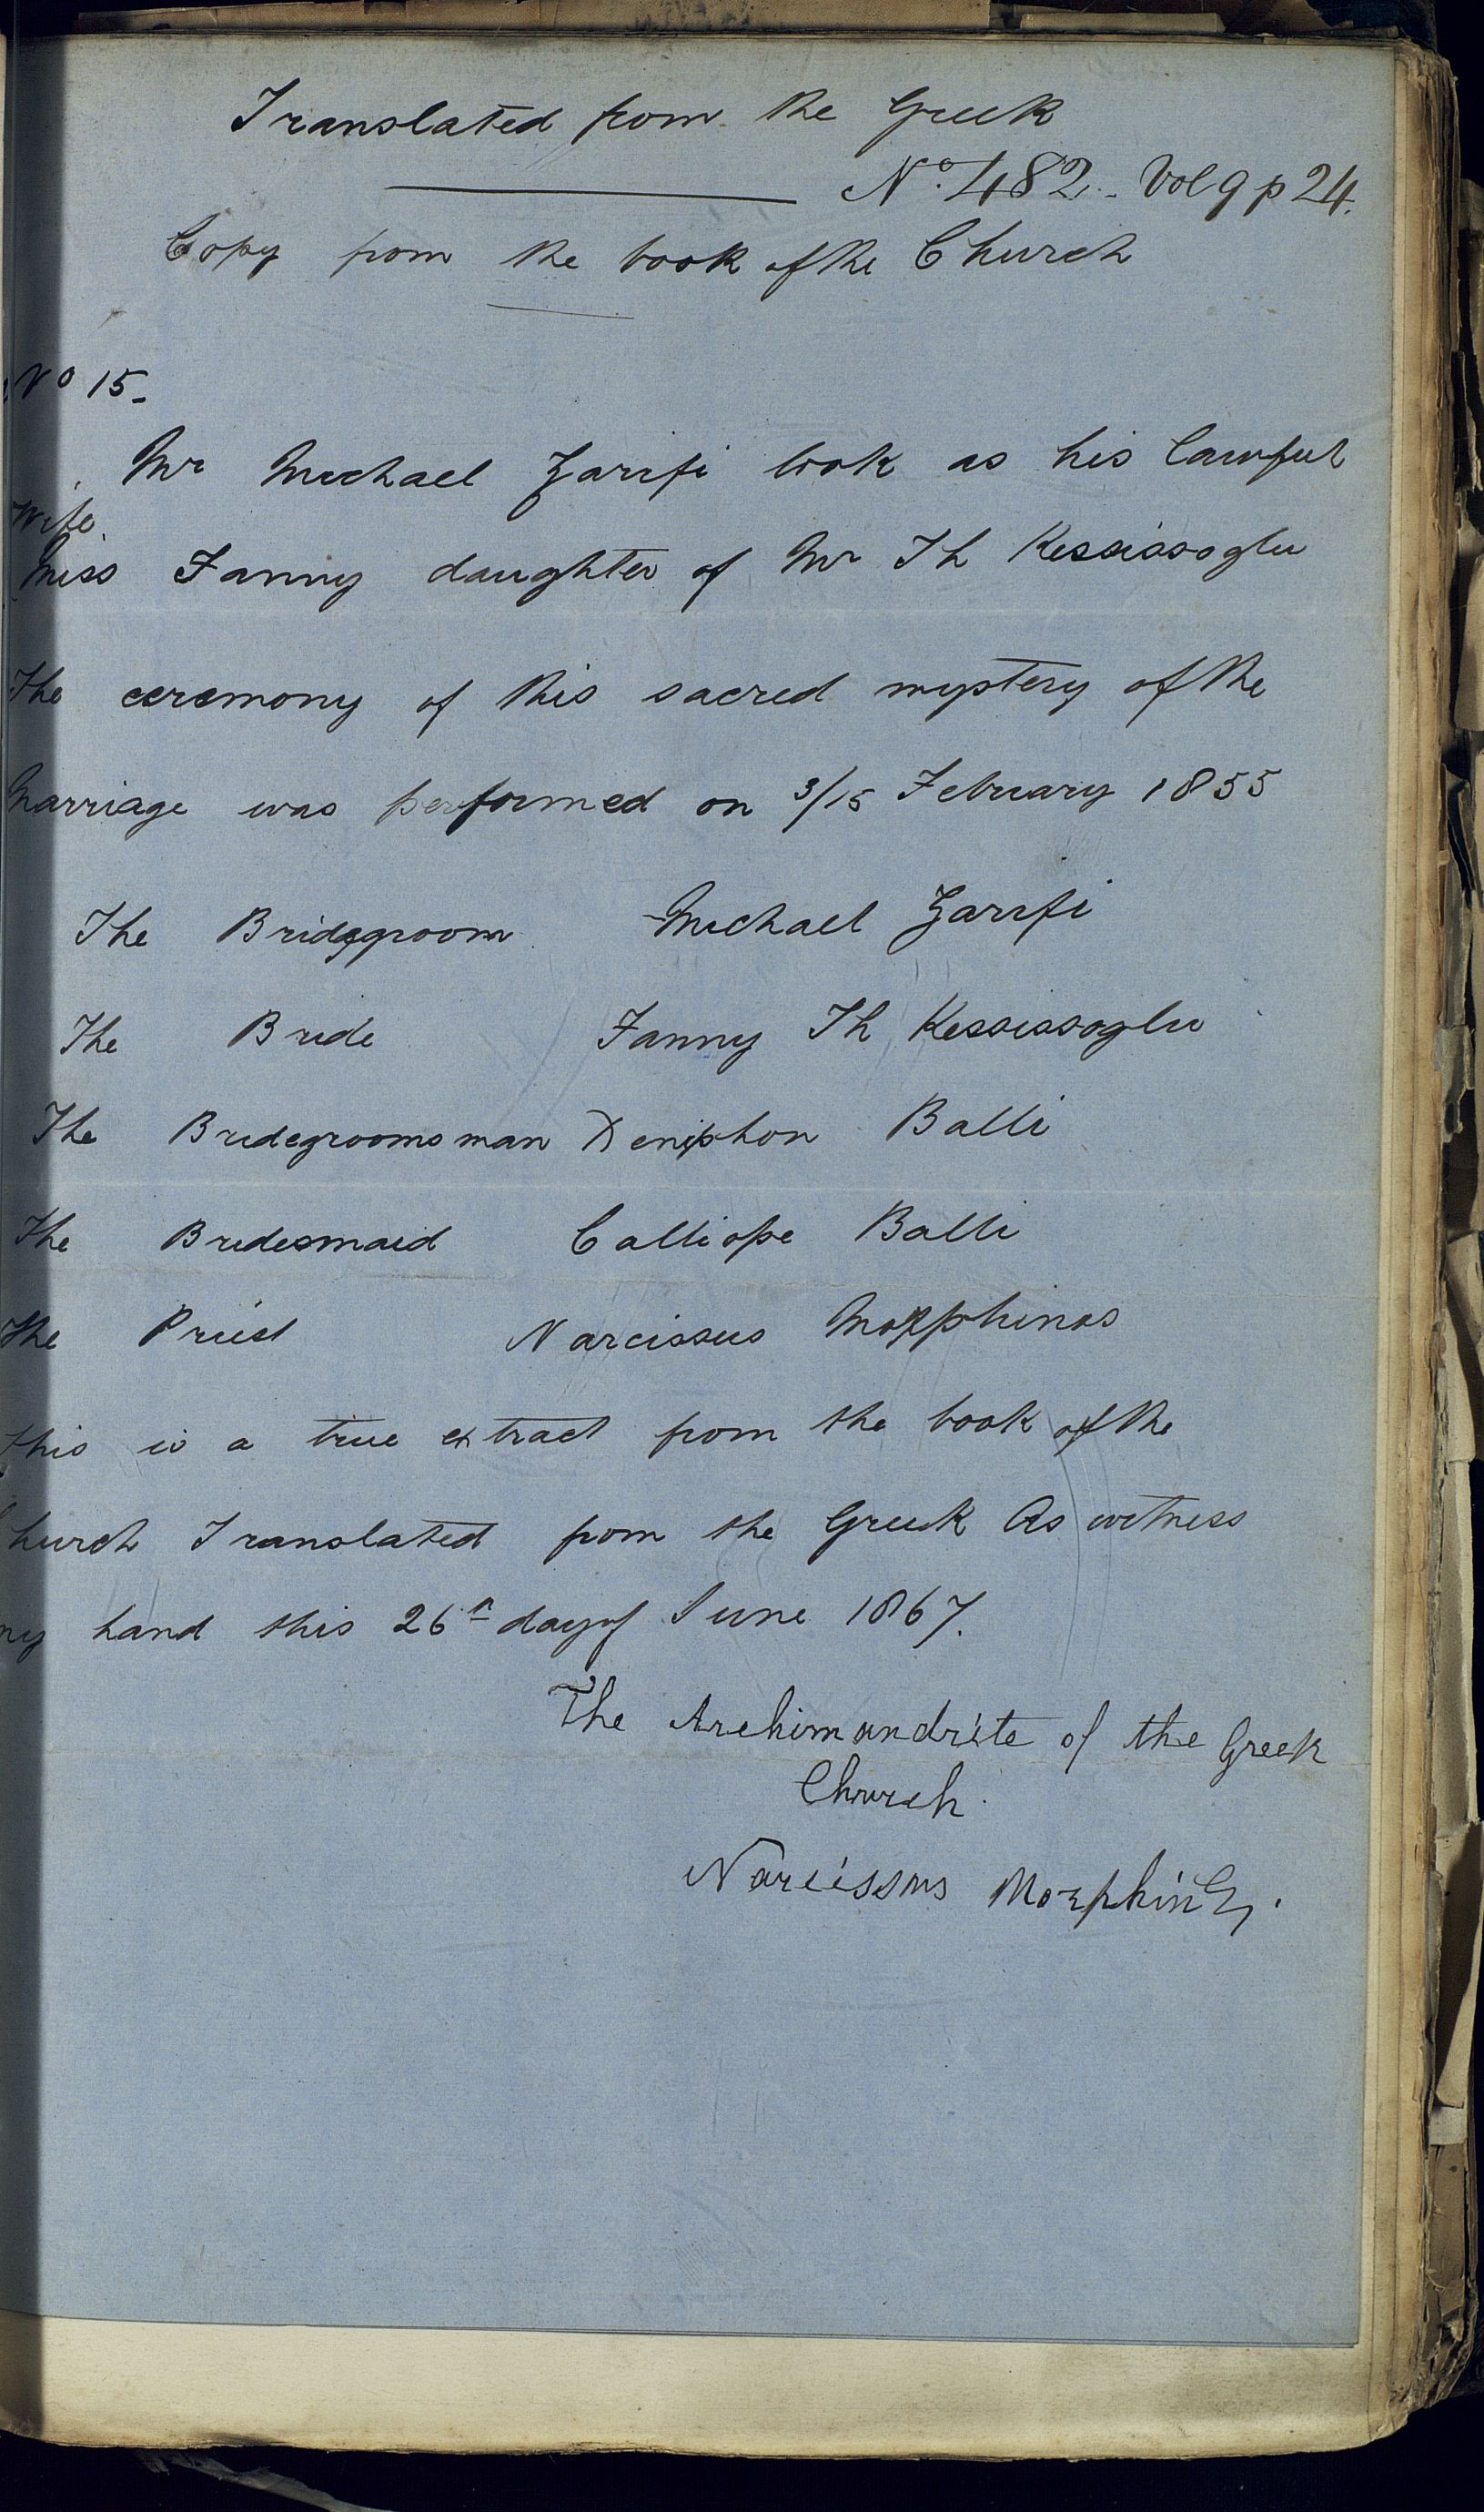 Translated from the Greek
No. 482. Vol 9 p 24.
Copy from the book of the Church
No 15.
Mr Michael Zarifi took as his lawful
Wife
Miss Fanny daughter of Mr Th Kessissoglu
The ceremony of this sacred mystery of the
Marriage was performed on 3/15 February 1855
The Bridegroom Michael Zarifi
The Bride Fanny Th Kessissoglu
The Bridegroomsman Xeniphon Balli
The Bridesmaid Calliope Balli
The Priest Narcissus Morphinos
This is a true extract from the book of the
Church Translated from the Greek As witness
my hand this 26th day of June 1867.
The Archimandrite of the Greek
Church.
Narcissus Morphinos.